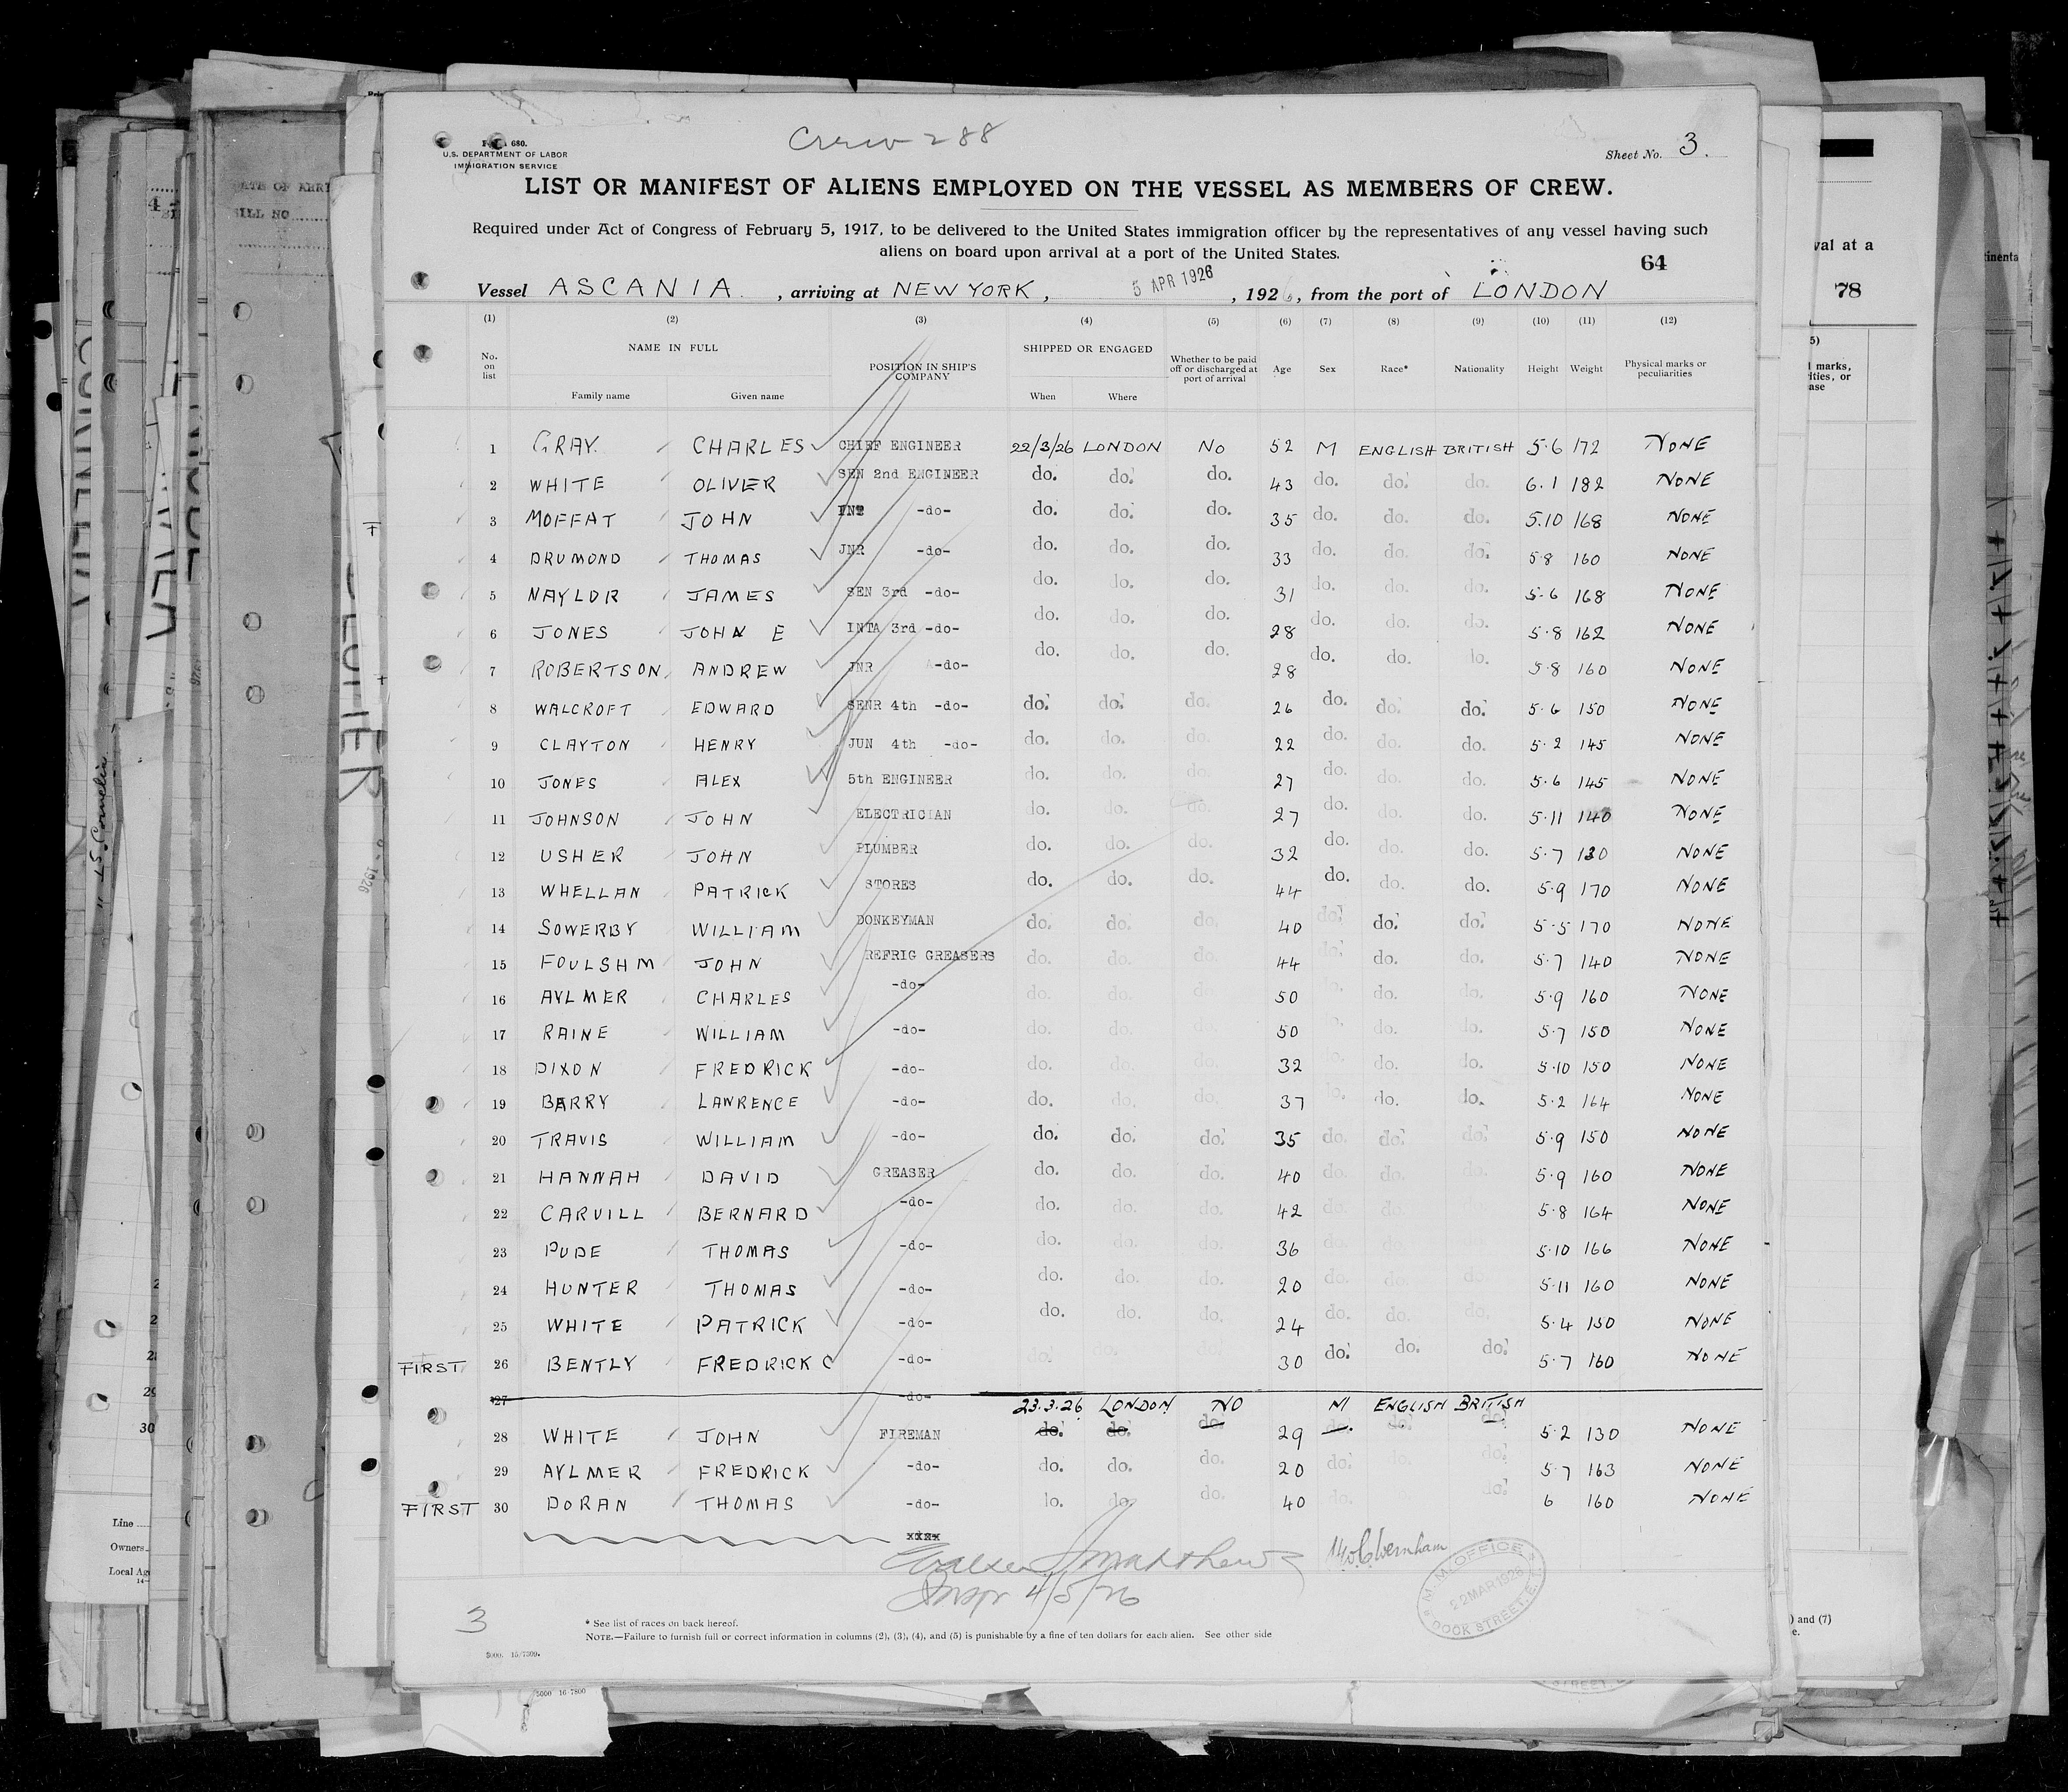 Crew 288
680.
U.S. DEPARTMENT OF LABOR
IMMIGRATION SERVICE
Sheet No. 3.
LIST OR MANIFEST OF ALIENS EMPLOYED ON THE VESSEL AS MEMBERS OF CREW.
Required under Act of Congress of February 5, 1917, to be delivered to the United States immigration officer by the representatives of any vessel having such
aliens on board upon arrival at a port of the United States.
64
Vessel ASCANIA, arriving at NEW YORK, 5 APR 1926, 1926, from the port of LONDON
(1) (2) (3) (4) (5) (6) (7) (8) (9) (10) (11) (12)
No. on list NAME IN FULL Family name Given name POSITION IN SHIP'S COMPANY SHIPPED OR ENGAGED When Where Whether to be paid off or discharged at port of arrival Age Sex Race* Nationality Height Weight Physical marks or peculiarities
1 GRAY CHARLES CHIEF ENGINEER 22/3/26 LONDON NO 52 M ENGLISH BRITISH 5·6 172 NONE
2 WHITE OLIVER SEN 2nd ENGINEER do. do. do. 43 do. do. do. 6.1 182 NONE
3 MOFFAT JOHN INT -do- do. do. do. 35 do. do. do. 5.10 168 NONE
4 DRUMOND THOMAS JNR -do- do. do. do. 33 do. do. do. 5·8 160 NONE
5 NAYLOR JAMES SEN 3rd -do- do. do. do. 31 do. do. do. 5·6 168 NONE
6 JONES JOHN E INTA 3rd -do- do. do. do. 28 do. do. do. 5·8 162 NONE
7 ROBERTSON ANDREW JNR -do- do. do. do. 28 do. do. do. 5·8 160 NONE
8 WALCROFT EDWARD SENR 4th -do- do. do. do. 26 do. do. do. 5·6 150 NONE
9 CLAYTON HENRY JUN 4th -do- do. do. do. 22 do. do. do. 5·2 145 NONE
10 JONES ALEX 5th ENGINEER do. do. do. 27 do. do. do. 5·6 145 NONE
11 JOHNSON JOHN ELECTRICIAN do. do. do. 27 do. do. do. 5·11 140 NONE
12 USHER JOHN PLUMBER do. do. do. 32 do. do. do. 5·7 130 NONE
13 WHELLAN PATRICK STORES do. do. do. 44 do. do. do. 5·9 170 NONE
14 SOWERBY WILLIAM DONKEYMAN do. do. do. 40 do. do. do. 5·5 170 NONE
15 FOULSHM JOHN REFRIG GREASERS do. do. do. 44 do. do. do. 5·7 140 NONE
16 AYLMER CHARLES -do- do. do. do. 50 do. do. 5·9 160 NONE
17 RAINE WILLIAM -do- do. do. do. 50 do. do. 5·7 150 NONE
18 DIXON FREDRICK -do- do. do. do. 32 do. do. 5·10 150 NONE
19 BARRY LAWRENCE -do- do. do. do. 37 do. do. do. 5·2 164 NONE
20 TRAVIS WILLIAM -do- do. do. do. 35 do. do. do. 5·9 150 NONE
21 HANNAH DAVID GREASER do. do. do. 40 do. do. do. 5·9 160 NONE
22 CARVILL BERNARD -do- do. do. do. 42 do. do. 5·8 164 NONE
23 PUDE THOMAS -do- do. do. do. 36 do. do. 5·10 166 NONE
24 HUNTER THOMAS -do- do. do. do. 20 do. do. do. 5·11 160 NONE
25 WHITE PATRICK -do- do. do. do. 24 do. do. do. 5·4 130 NONE
FIRST 26 BENTLY FREDRICK C -do- do. do. do. 30 do. do. do. 5·7 160 NONE
27 -do-
23.3.26 LONDON NO M ENGLISH BRITISH
28 WHITE JOHN FIREMAN do. do. do. 29 do. do. do. 5·2 130 NONE
29 AYLMER FREDRICK -do- do. do. do. 20 do. do. do. 5·7 163 NONE
FIRST 30 DORAN THOMAS -do- do. do. do. 40 do. do. 6 160 NONE
xxxx
Matthews
Inspr 4/5/26
M.M. OFFICE
22 MAR 1926
DOCK STREET. E.
3
* See list of races on back hereof.
NOTE.—Failure to furnish full or correct information in columns (2), (3), (4), and (5) is punishable by a fine of ten dollars for each alien. See other side
val at a
78
marks,
and (7)
Line
Owners
Local Ag
30
5000 16-7800